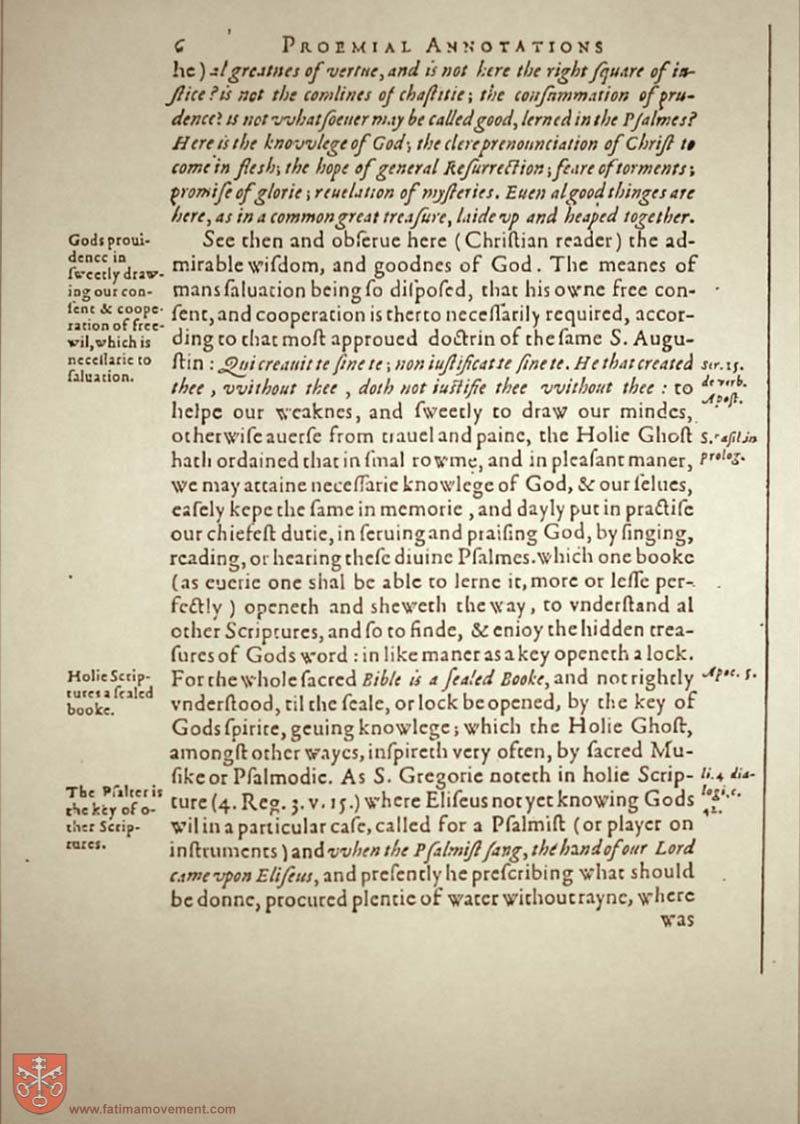 6 PROEMIAL ANNOTATIONS
he) al greatnes of vertue, and is not here the right ſquare of iu-
ſtice? is not the comlines of chaſtitie; the conſummation of pru-
dence? is not vvhatſoeuer may be called good, lerned in the Pſalmes?
Here is the knovvlege of God; the clere prenounciation of Chriſt to
come in fleſh; the hope of general Reſurrection; feare of torments;
promiſe of glorie; reuelation of myſteries. Euen al good thinges are
here, as in a common great treaſure, laide vp and heaped together.
See then and obſerue here (Chriſtian reader) the ad-
mirable wiſdom, and goodnes of God. The meanes of
mans ſaluation being ſo diſpoſed, that his owne free con-
ſent, and cooperation is therto neceſſarily required, accor-
ding to that moſt approued doctrin of the ſame S. Augu-
ſtin: Qui creauit te ſine te; non iuſtificat te ſine te. He that created
thee, vvithout thee, doth not iuſtifie thee vvithout thee: to
helpe our weaknes, and ſweetly to draw our mindes,
otherwiſe auerſe from trauel and paine, the Holie Ghoſt
hath ordained that in ſmal rowme, and in pleaſant maner,
we may attaine neceſſarie knowlege of God, & our ſelues,
eaſely kepe the ſame in memorie, and dayly put in practiſe
our chiefeſt dutie, in ſeruing and praiſing God, by ſinging,
reading, or hearing theſe diuine Pſalmes. which one booke
(as euerie one shal be able to lerne it, more or leſſe per-
fectly) openeth and sheweth the way, to vnderſtand al
other Scriptures, and ſo to finde, & enioy the hidden trea-
ſures of Gods word: in like maner as a key openeth a lock.
For the whole ſacred Bible is a ſealed Booke, and not rightly
vnderſtood, til the ſeale, or lock be opened, by the key of
Gods ſpirite, geuing knowlege; which the Holie Ghoſt,
amongſt other wayes, inſpireth very often, by ſacred Mu-
ſike or Pſalmodie. As S. Gregorie noteth in holie Scrip-
ture (4. Reg. 3. v. 15.) where Eliſeus not yet knowing Gods
wil in a particular caſe, called for a Pſalmiſt (or player on
inſtruments) and vvhen the Pſalmiſt ſang, the hand of our Lord
came vpon Eliſeus, and preſently he preſcribing what should
be donne, procured plentie of water without rayne, where
was
Gods proui-
dence in
ſweetly draw-
ing our con-
ſent & coope-
ration of free-
wil, which is
neceſſarie to
ſaluation.
Holie Scrip-
tures a ſealed
booke.
The Pſalter is
the key of o-
ther Scrip-
tures.
ser. 15.
de verb.
Apoſt.
S. Baſil in
prolog.
Apoc. 5.
li. 4 dia-
logi, c.
42.
www.fatimamovement.com